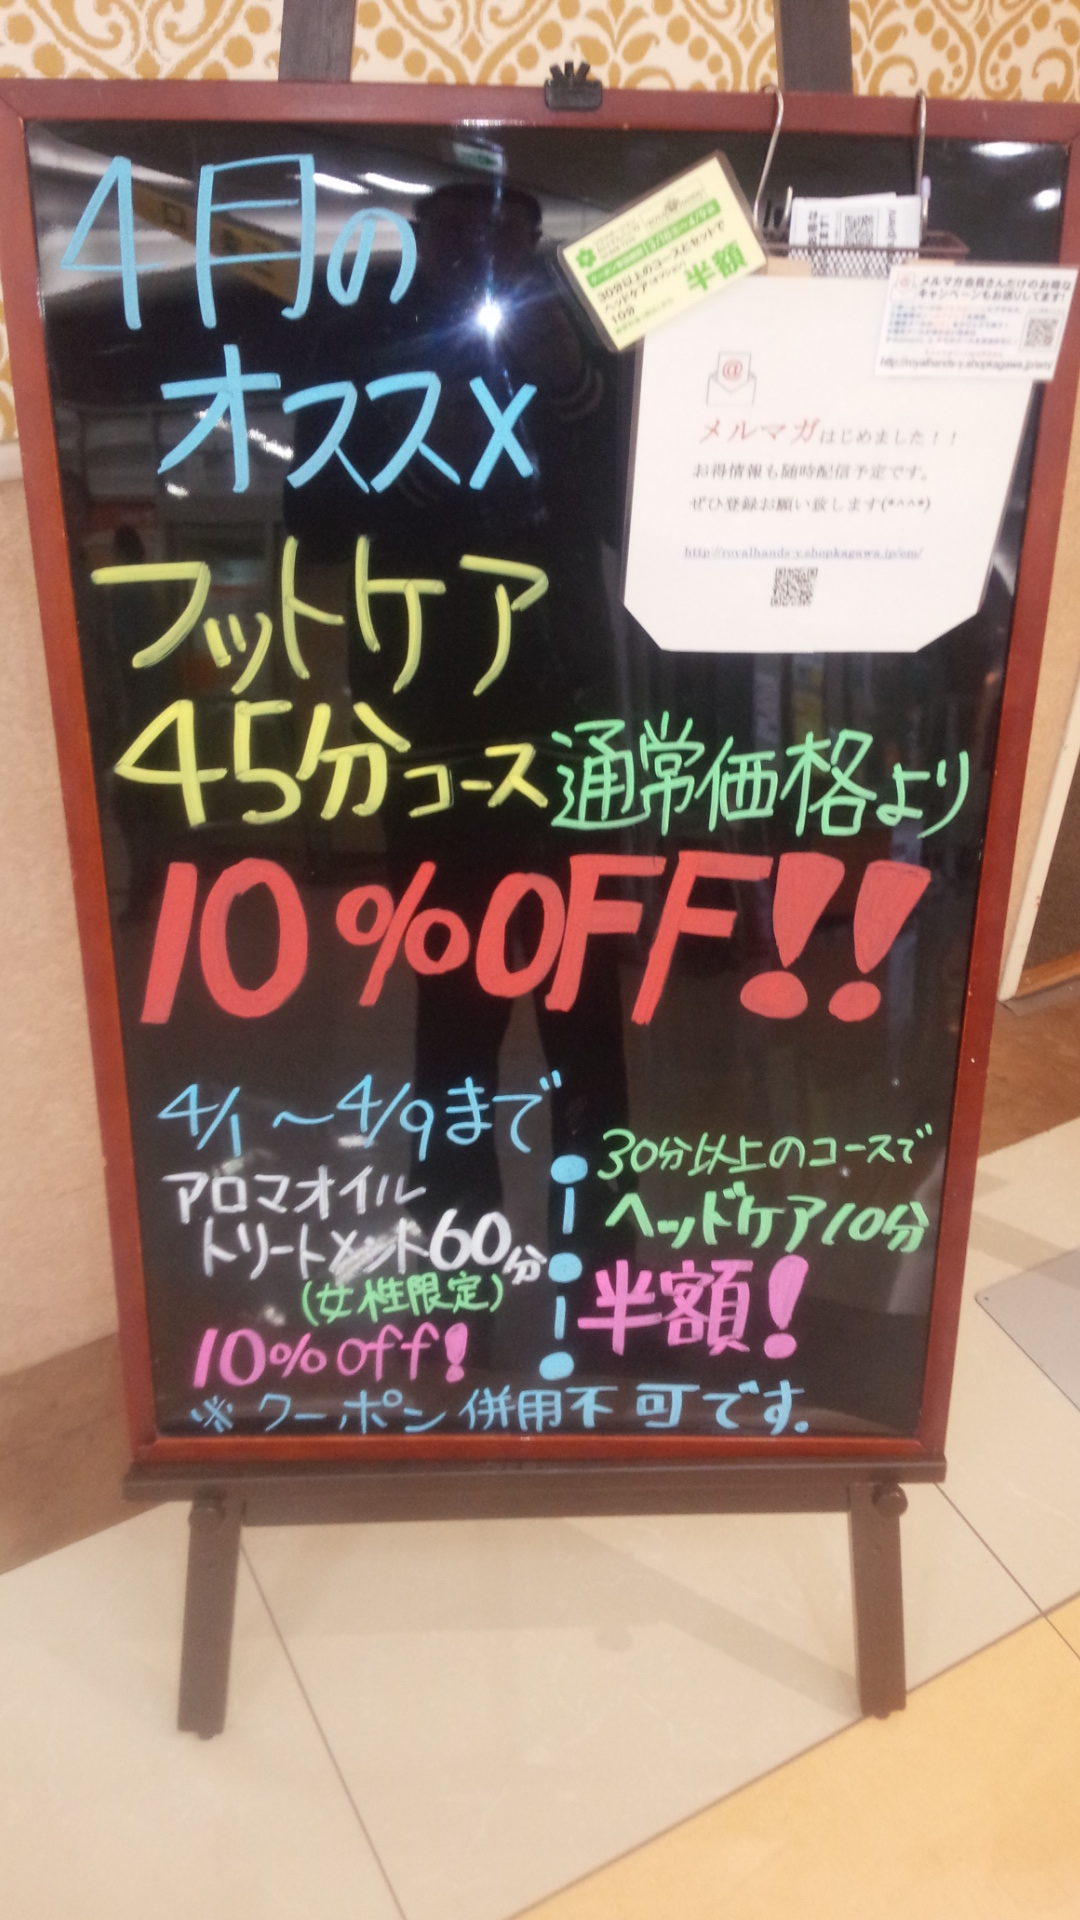 4月の
オススメ
フットケア
45分コース 通常価格より
10%OFF!!
4/1～4/9まで
アロマオイル
トリートメント60分
(女性限定)
10%off!
30分以上のコースで
ヘッドケア10分
半額!
※クーポン併用不可です。
30分以上のコースとセットで
10分
半額
@
メルマガはじめました！！
お得情報も随時配信予定です。
ぜひ登録お願い致します(*^^*)
http://royalhands-y.shopkagawa.jp/em/
メルマガ会員さんだけのお得な
キャンペーンもお送りしてます!